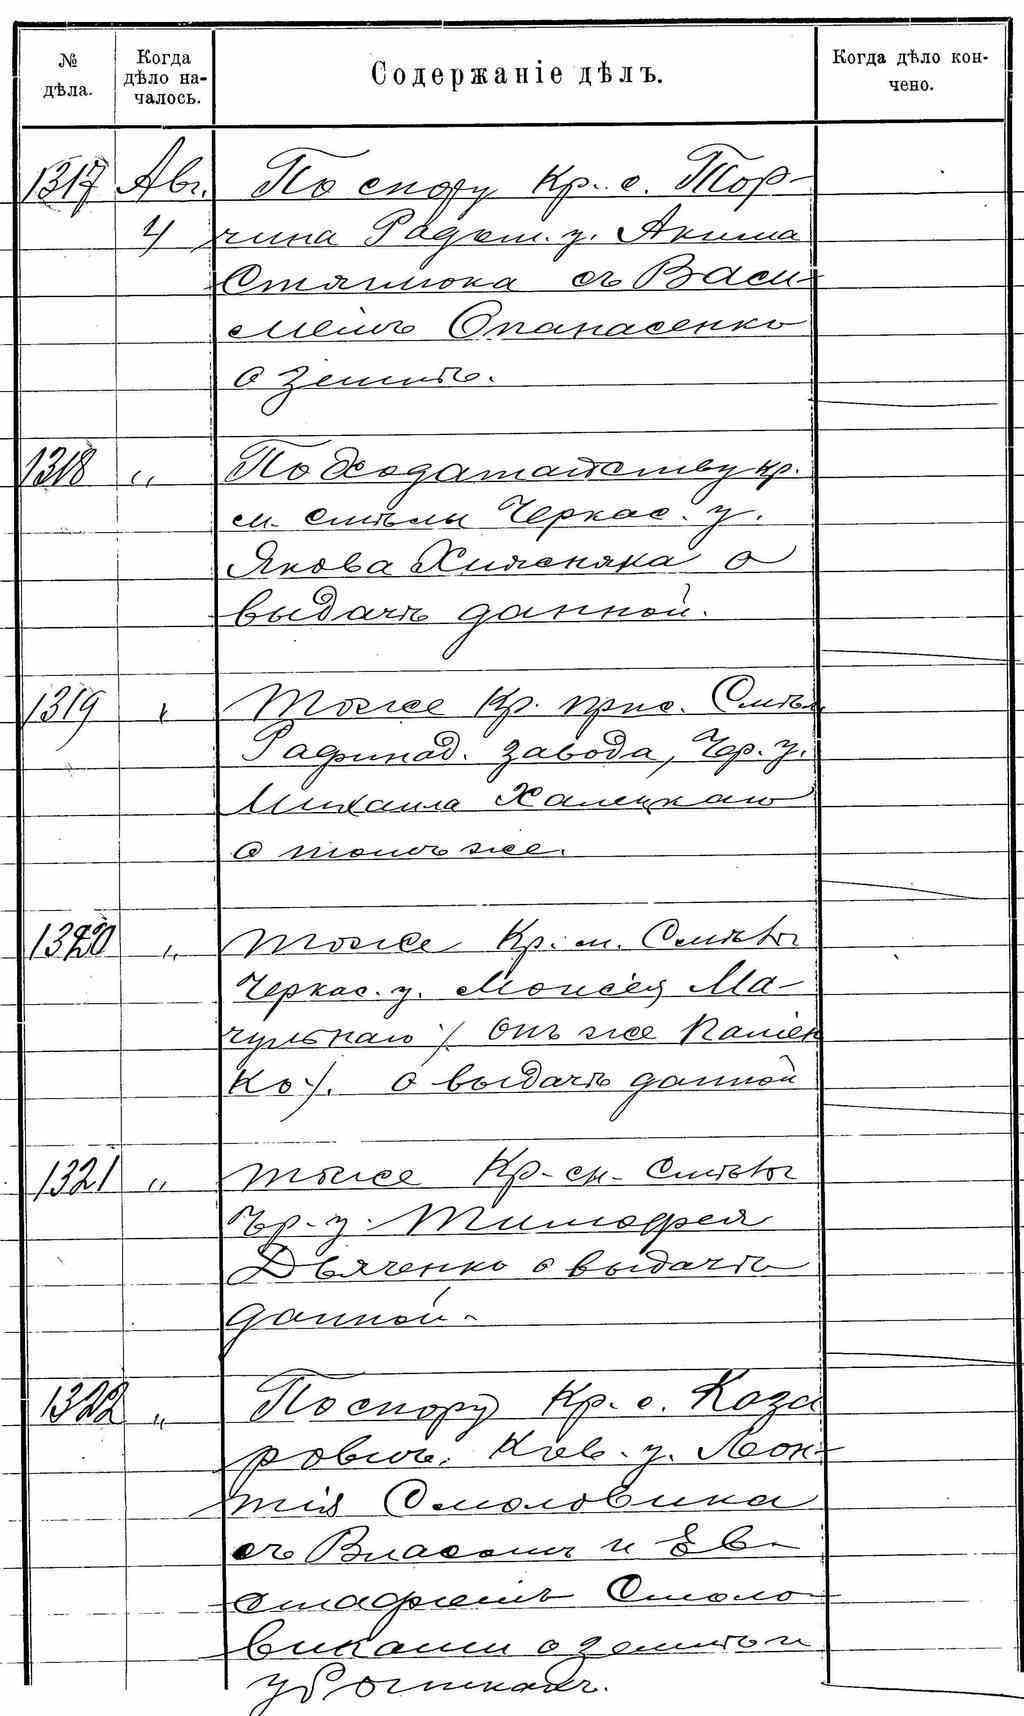 № дѣла.
Когда дѣло началось.
Содержаніе дѣлъ.
Когда дѣло кончено.
1317 Авг. По спору Кр. с. Тор-
4 чина Радом. у. Акима
съ Васи-
лiемъ Опанасенко
о землѣ.
1318 „ По ходатайству кр.
м. Смѣлы Черкас. у.
Якова Хижняка о
выдачѣ данной.
1319 „ Тоже Кр. прис. Смѣл.
Рафинад. завода, Чер. у.
Михаила Халецкаго
о томъ же.
1320 „ тоже Кр. м. Смѣлы
Черкас. у. Моисея Ма-
чульнаго /. Онъ же
ко ./. о выдачѣ данной
1321 „ тоже Кр. м. Смѣлы
Чр. у. Тимофея
Дьяченко о выдачѣ
данной.
1322 „ По спору Кр. с. Коза
ровичъ, Кіев. у. Леон-
тія Смоловика
съ Власомъ и Ев-
стафіемъ Смоло-
виками о землѣ и
убыткахъ.